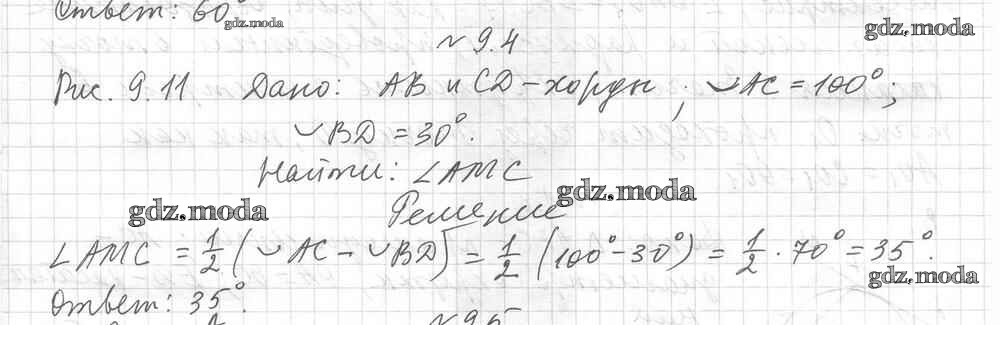 Ответ: 60°
gdz.moda
gdz.moda
№ 9.4
Рис. 9.11 Дано: AB и CD – хорды; ◡AC = 100°;
◡BD = 30°.
Найти: ∠AMC
gdz.moda
gdz.moda
Решение
∠AMC = 1/2 (◡AC – ◡BD) = 1/2 (100° – 30°) = 1/2 · 70° = 35°.
gdz.moda
Ответ: 35°.
№ 9.5